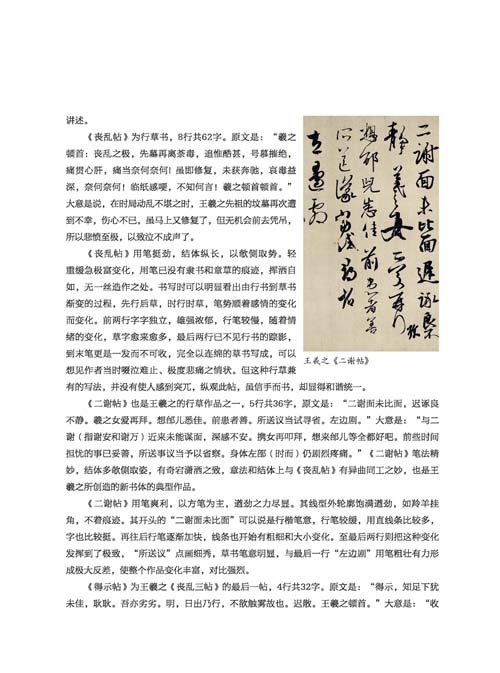 讲述。
《丧乱帖》为行草书，8行共62字。原文是：“羲之
顿首：丧乱之极，先墓再离荼毒，追惟酷甚，号慕摧绝，
痛贯心肝，痛当奈何奈何！虽即修复，未获奔驰，哀毒益
深，奈何奈何！临纸感哽，不知何言！羲之顿首顿首。”
大意是说，在时局动乱不堪之时，王羲之先祖的坟墓再次遭
到不幸，伤心不已，虽马上又修复了，但无机会前去凭吊，
所以悲愤至极，以致泣不成声了。
《丧乱帖》用笔挺劲，结体纵长，以欹侧取势。轻
重缓急极富变化，用笔已没有隶书和章草的痕迹，挥洒自
如，无一丝造作之处。书写时可以明显看出由行书到草书
渐变的过程，先行后草，时行时草，笔势顺着感情的变化
而变化。前两行字字独立，雄强浓郁，行笔较慢，随着情
绪的变化，草字愈来愈多，最后两行已不见行书的踪影，
到末笔更是一发而不可收，完全以连绵的草书写成，可以
想见作者当时啜泣难止、极度悲痛之情状。但这种行草兼
有的写法，并没有使人感到突兀，纵观此帖，虽信手而书，却显得和谐统一。
二谢面未比面迟诼良
静羲之女爱再拜
想邵儿悉佳前患者善
所送议当试寻省
左边剧
王羲之《二谢帖》
《二谢帖》也是王羲之的行草作品之一，5行共36字，原文是：“二谢面未比面，迟诼良
不静。羲之女爱再拜。想邰儿悉佳。前患者善。所送议当试寻省。左边剧。”大意是：“与二
谢（指谢安和谢万）近来未能谋面，深感不安。携女再叩拜，想来邰儿等全都好吧。前些时间
担忧的事已妥善，所送事议当予以省察。身体左部（时而）仍剧烈疼痛。”《二谢帖》笔法精
妙，结体多欹侧取姿，有奇宕潇洒之致，章法和结体上与《丧乱帖》有异曲同工之妙，也是王
羲之所创造的新书体的典型作品。
《二谢帖》用笔爽利，以方笔为主，遒劲之力尽显。其线型外轮廓饱满遒劲，如羚羊挂
角，不着痕迹。其开头的“二谢面未比面”可以说是行楷笔意，行笔较缓，用直线条比较多，
字也比较挺。再往后行笔逐渐加快，线条也开始有粗细和大小变化。至最后两行则把这种变化
发挥到了极致，“所送议”点画细秀，草书笔意明显，与最后一行“左边剧”用笔粗壮有力形
成极大反差，使整个作品变化丰富，对比强烈。
《得示帖》为王羲之《丧乱三帖》的最后一帖，4行共32字。原文是：“得示，知足下犹
未佳，耿耿。吾亦劣劣。明，日出乃行，不欲触雾故也。迟散。王羲之顿首。”大意是：“收